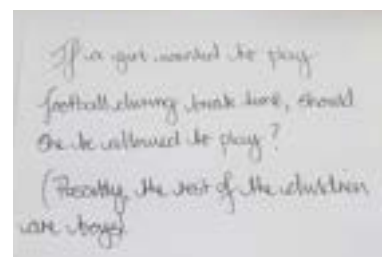 If a girl wanted to play
football during break time, should
she be allowed to play?
(Possibly, the rest of the children
are boys).